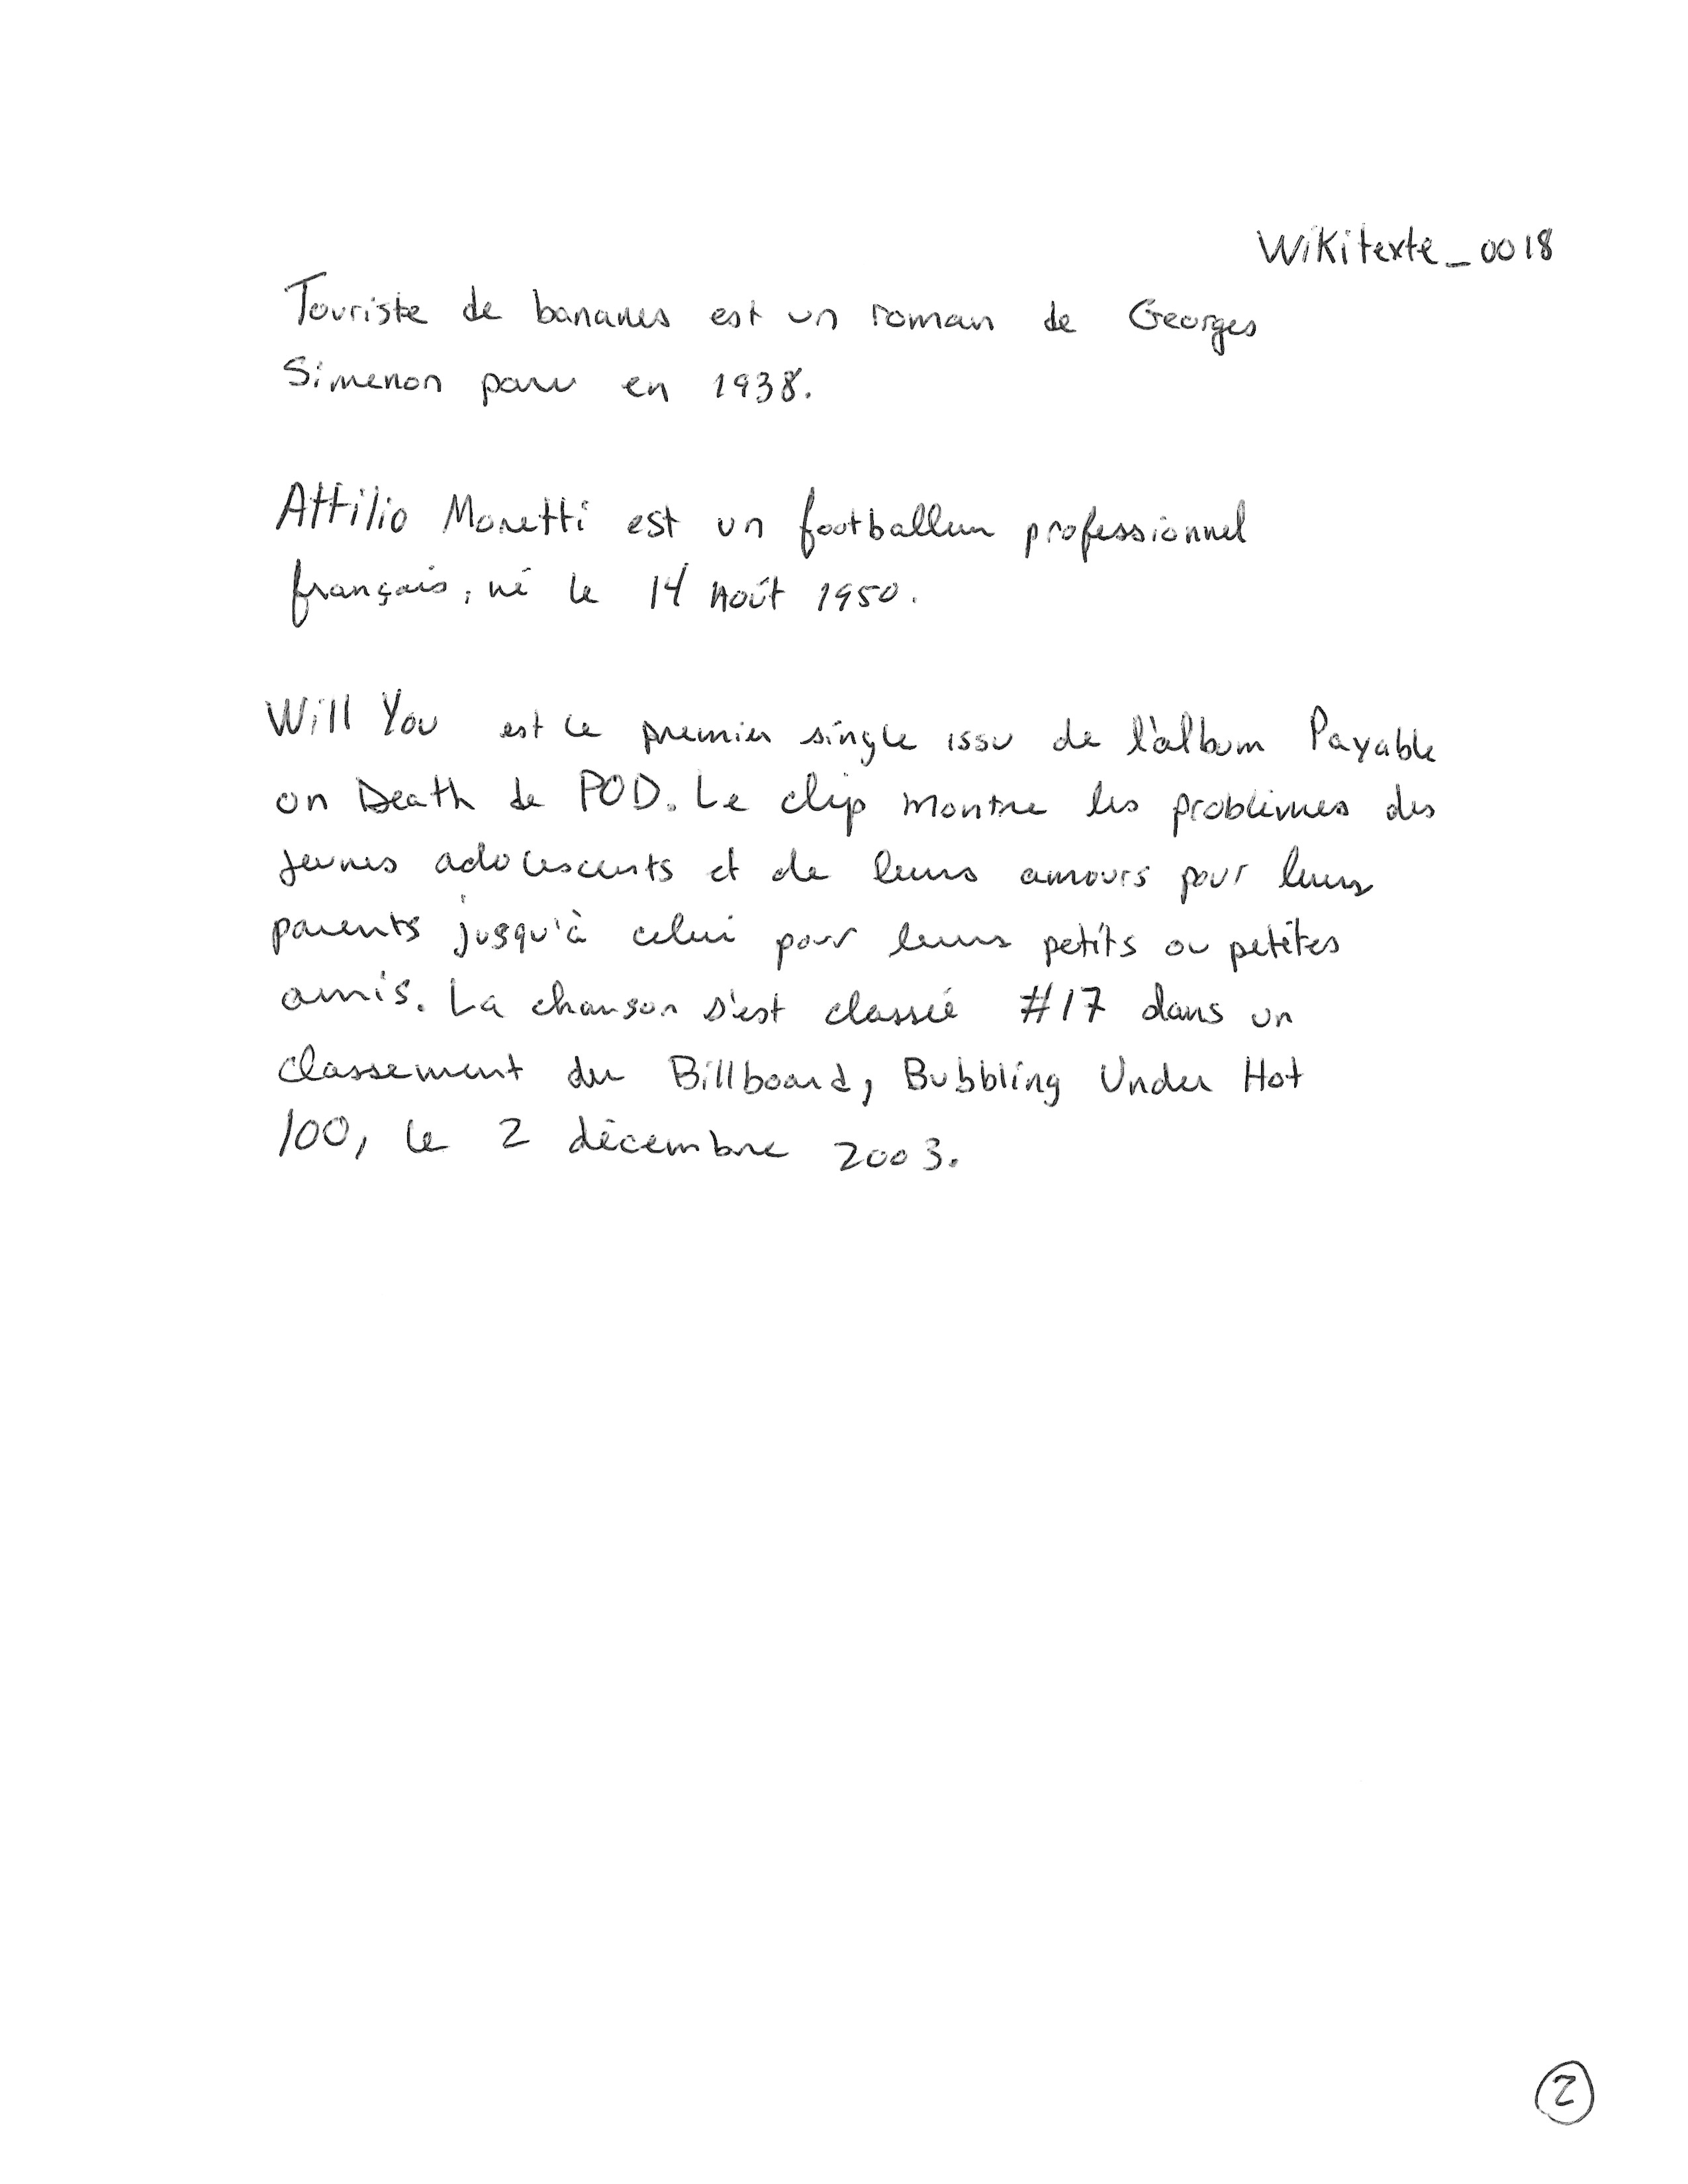 Wikitexte_0018
Touriste de bananes est un roman de Georges
Simenon paru en 1938.
Attilio Moretti est un footballeur professionnel
français, né le 14 Août 1950.
Will You est le premier single issu de l'album Payable
on Death de POD. Le clip montre les problèmes des
jeunes adolescents et de leurs amours pour leurs
parents jusqu'à celui pour leurs petits ou petites
amis. La chanson s'est classée #17 dans un
classement du Billboard, Bubbling Under Hot
100, le 2 décembre 2003.
2